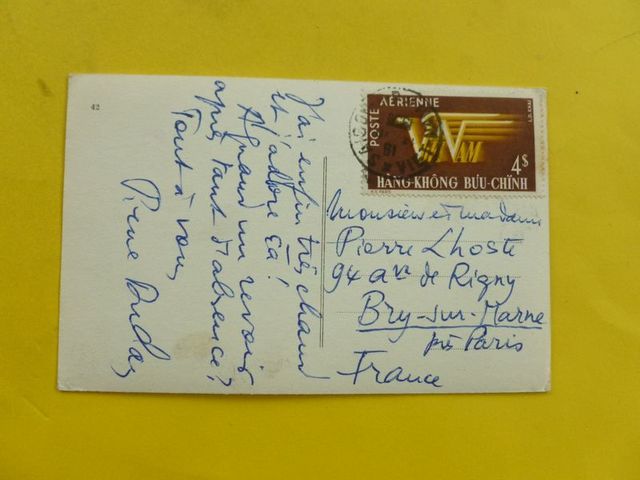 42
J'ai enfin très chaud
et j'adore ça!
A quand un revoir
après tant d'absence?
Tout à vous,
Pierre
POSTE AÉRIENNE
VIỆT NAM
4$
HÀNG-KHÔNG BƯU-CHÍNH
SAIGON
Monsieur et Madame
Pierre Lhoste
94 ave de Rigny
Bry-sur-Marne
près Paris
France